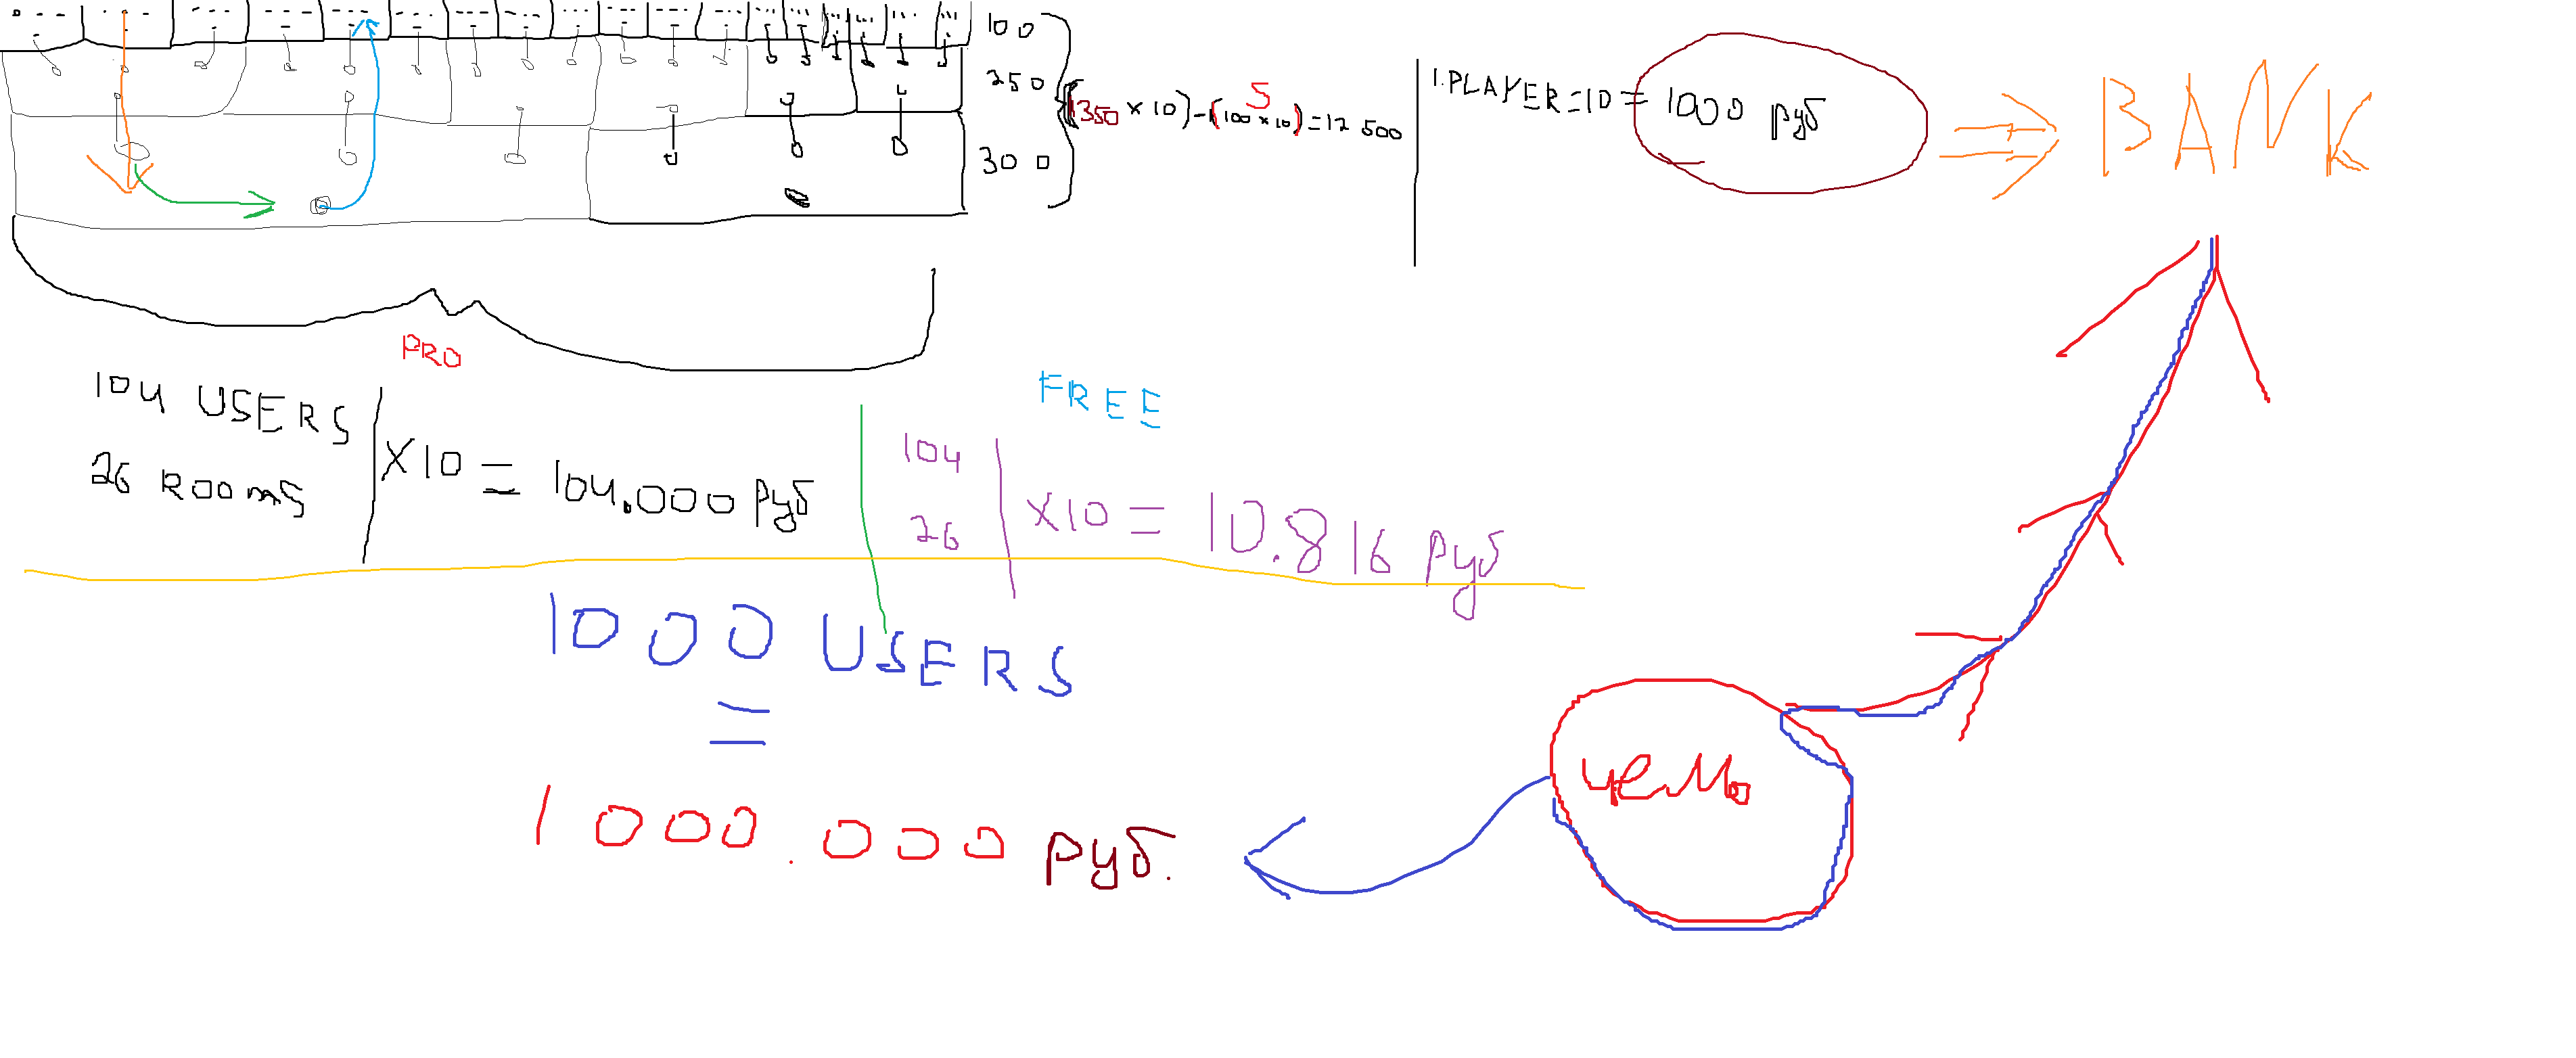 100
250
300
(1350 × 10) - (100 × 10) = 12 500
5
1. PLAYER = 10 = 1000 руб
BANK
PRO
FREE
104 USERS
26 ROOMS
×10 = 104.000 руб
104
26
×10 = 10.816 руб
1000 USERS
=
1 000.000 руб.
цель